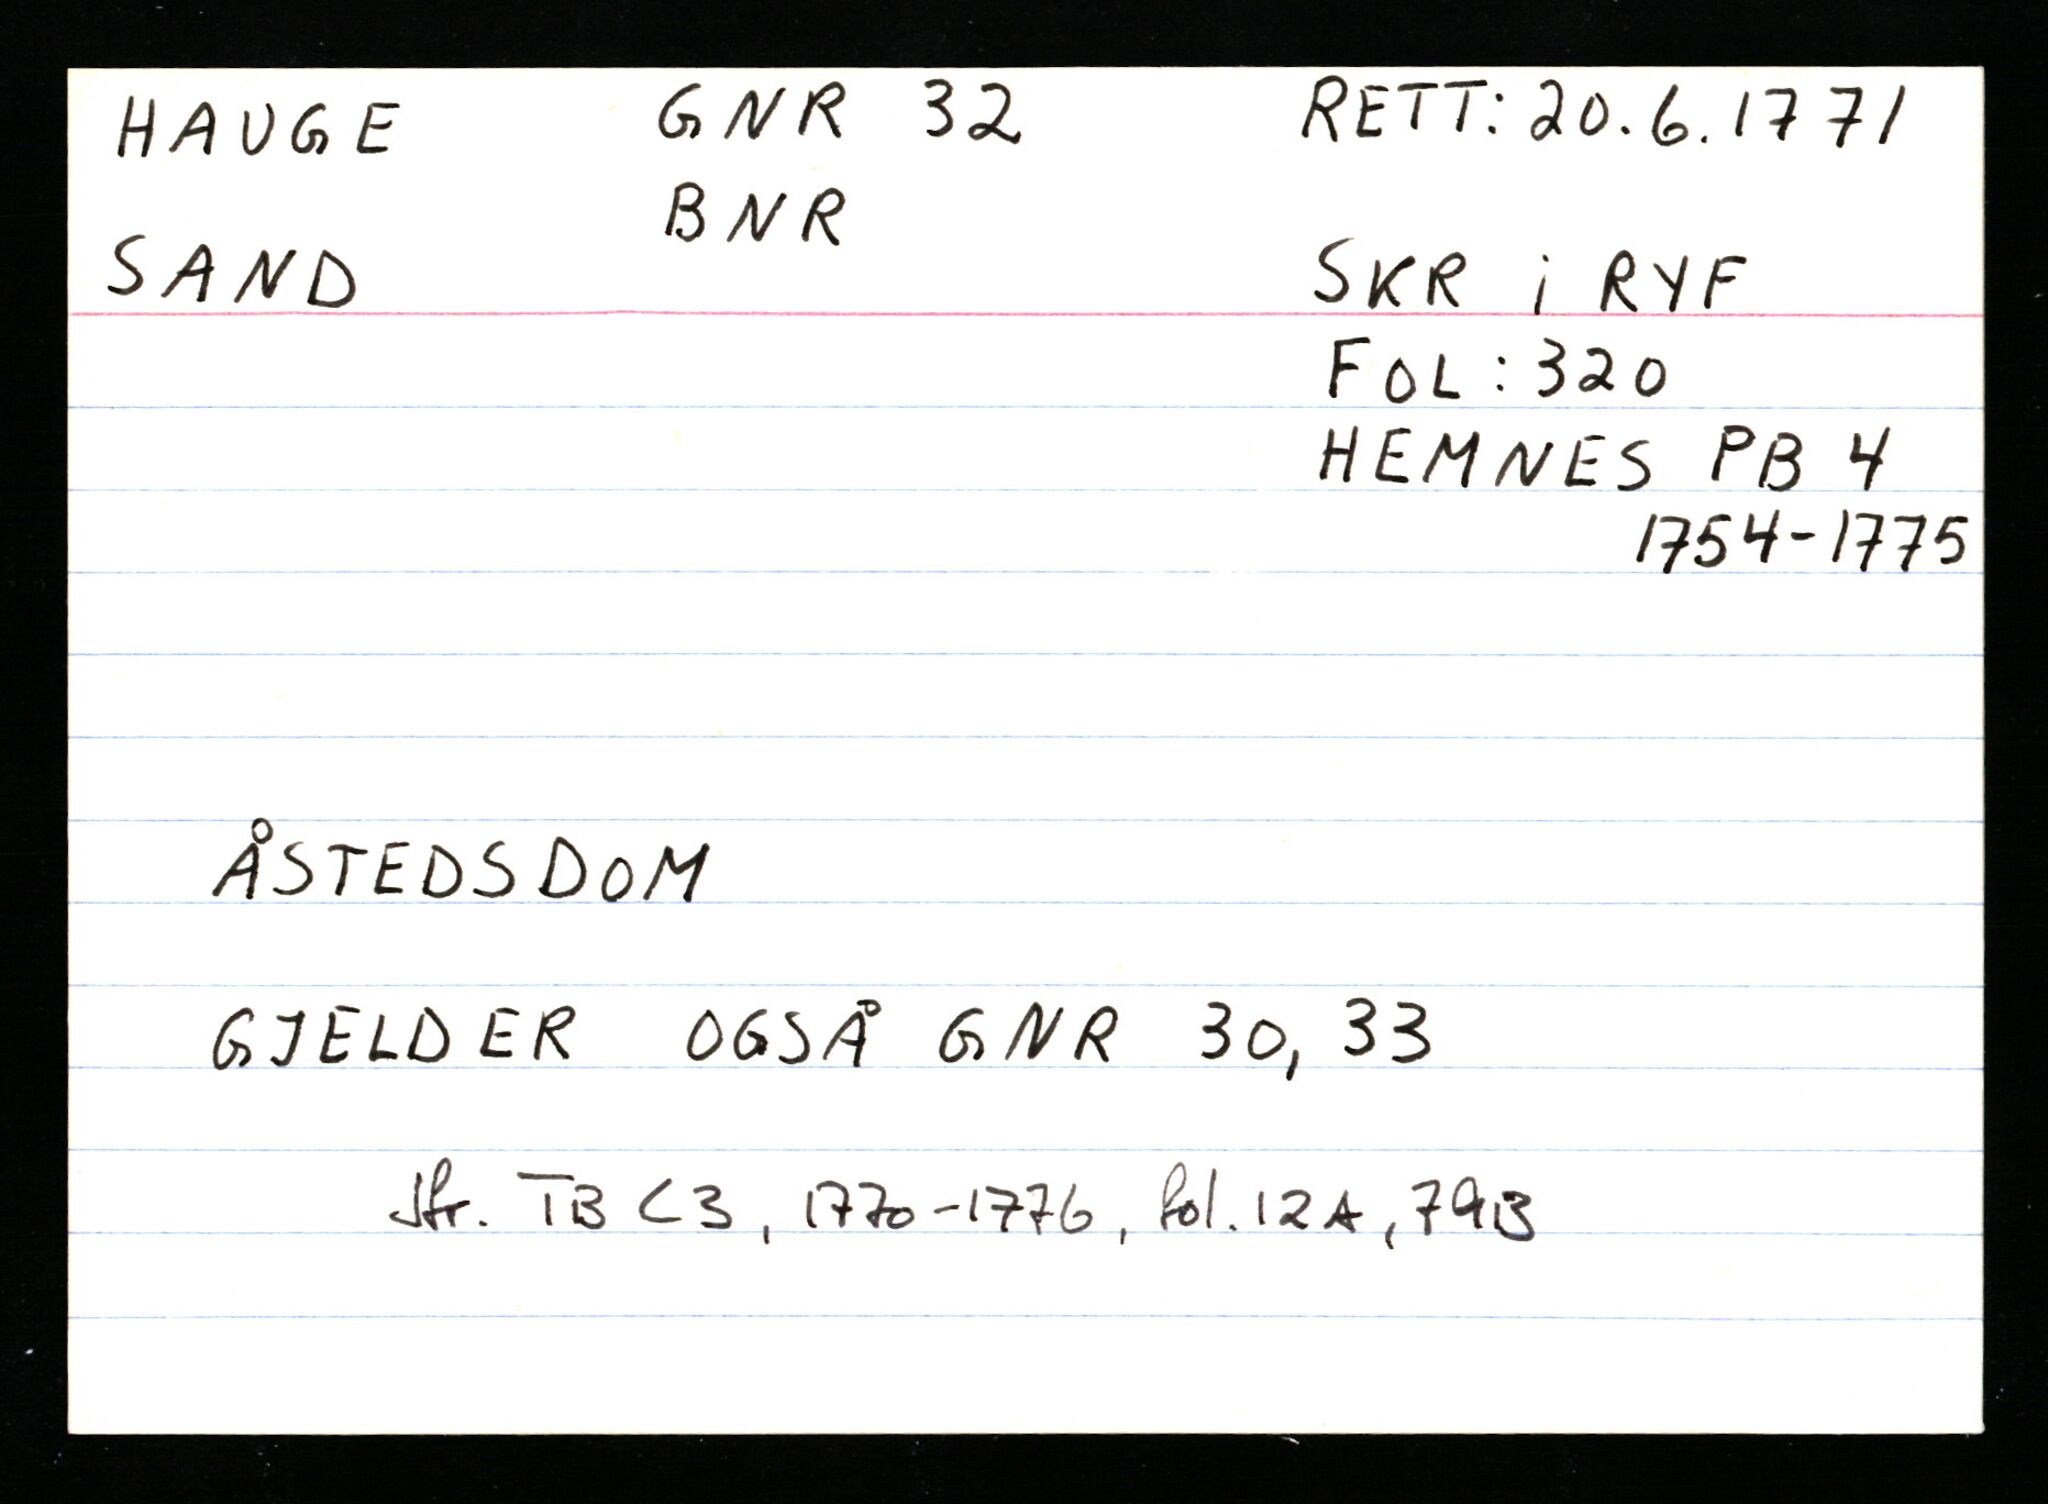 HAUGE GNR 32 RETT: 20.6.1771
BNR
SAND SKR i RYF
FOL: 320
HEMNES PB 4
1754-1775
ÅSTEDSDOM
GJELDER OGSÅ GNR 30, 33
Jfr. TB C 3, 1770-1776, fol. 12A, 79B